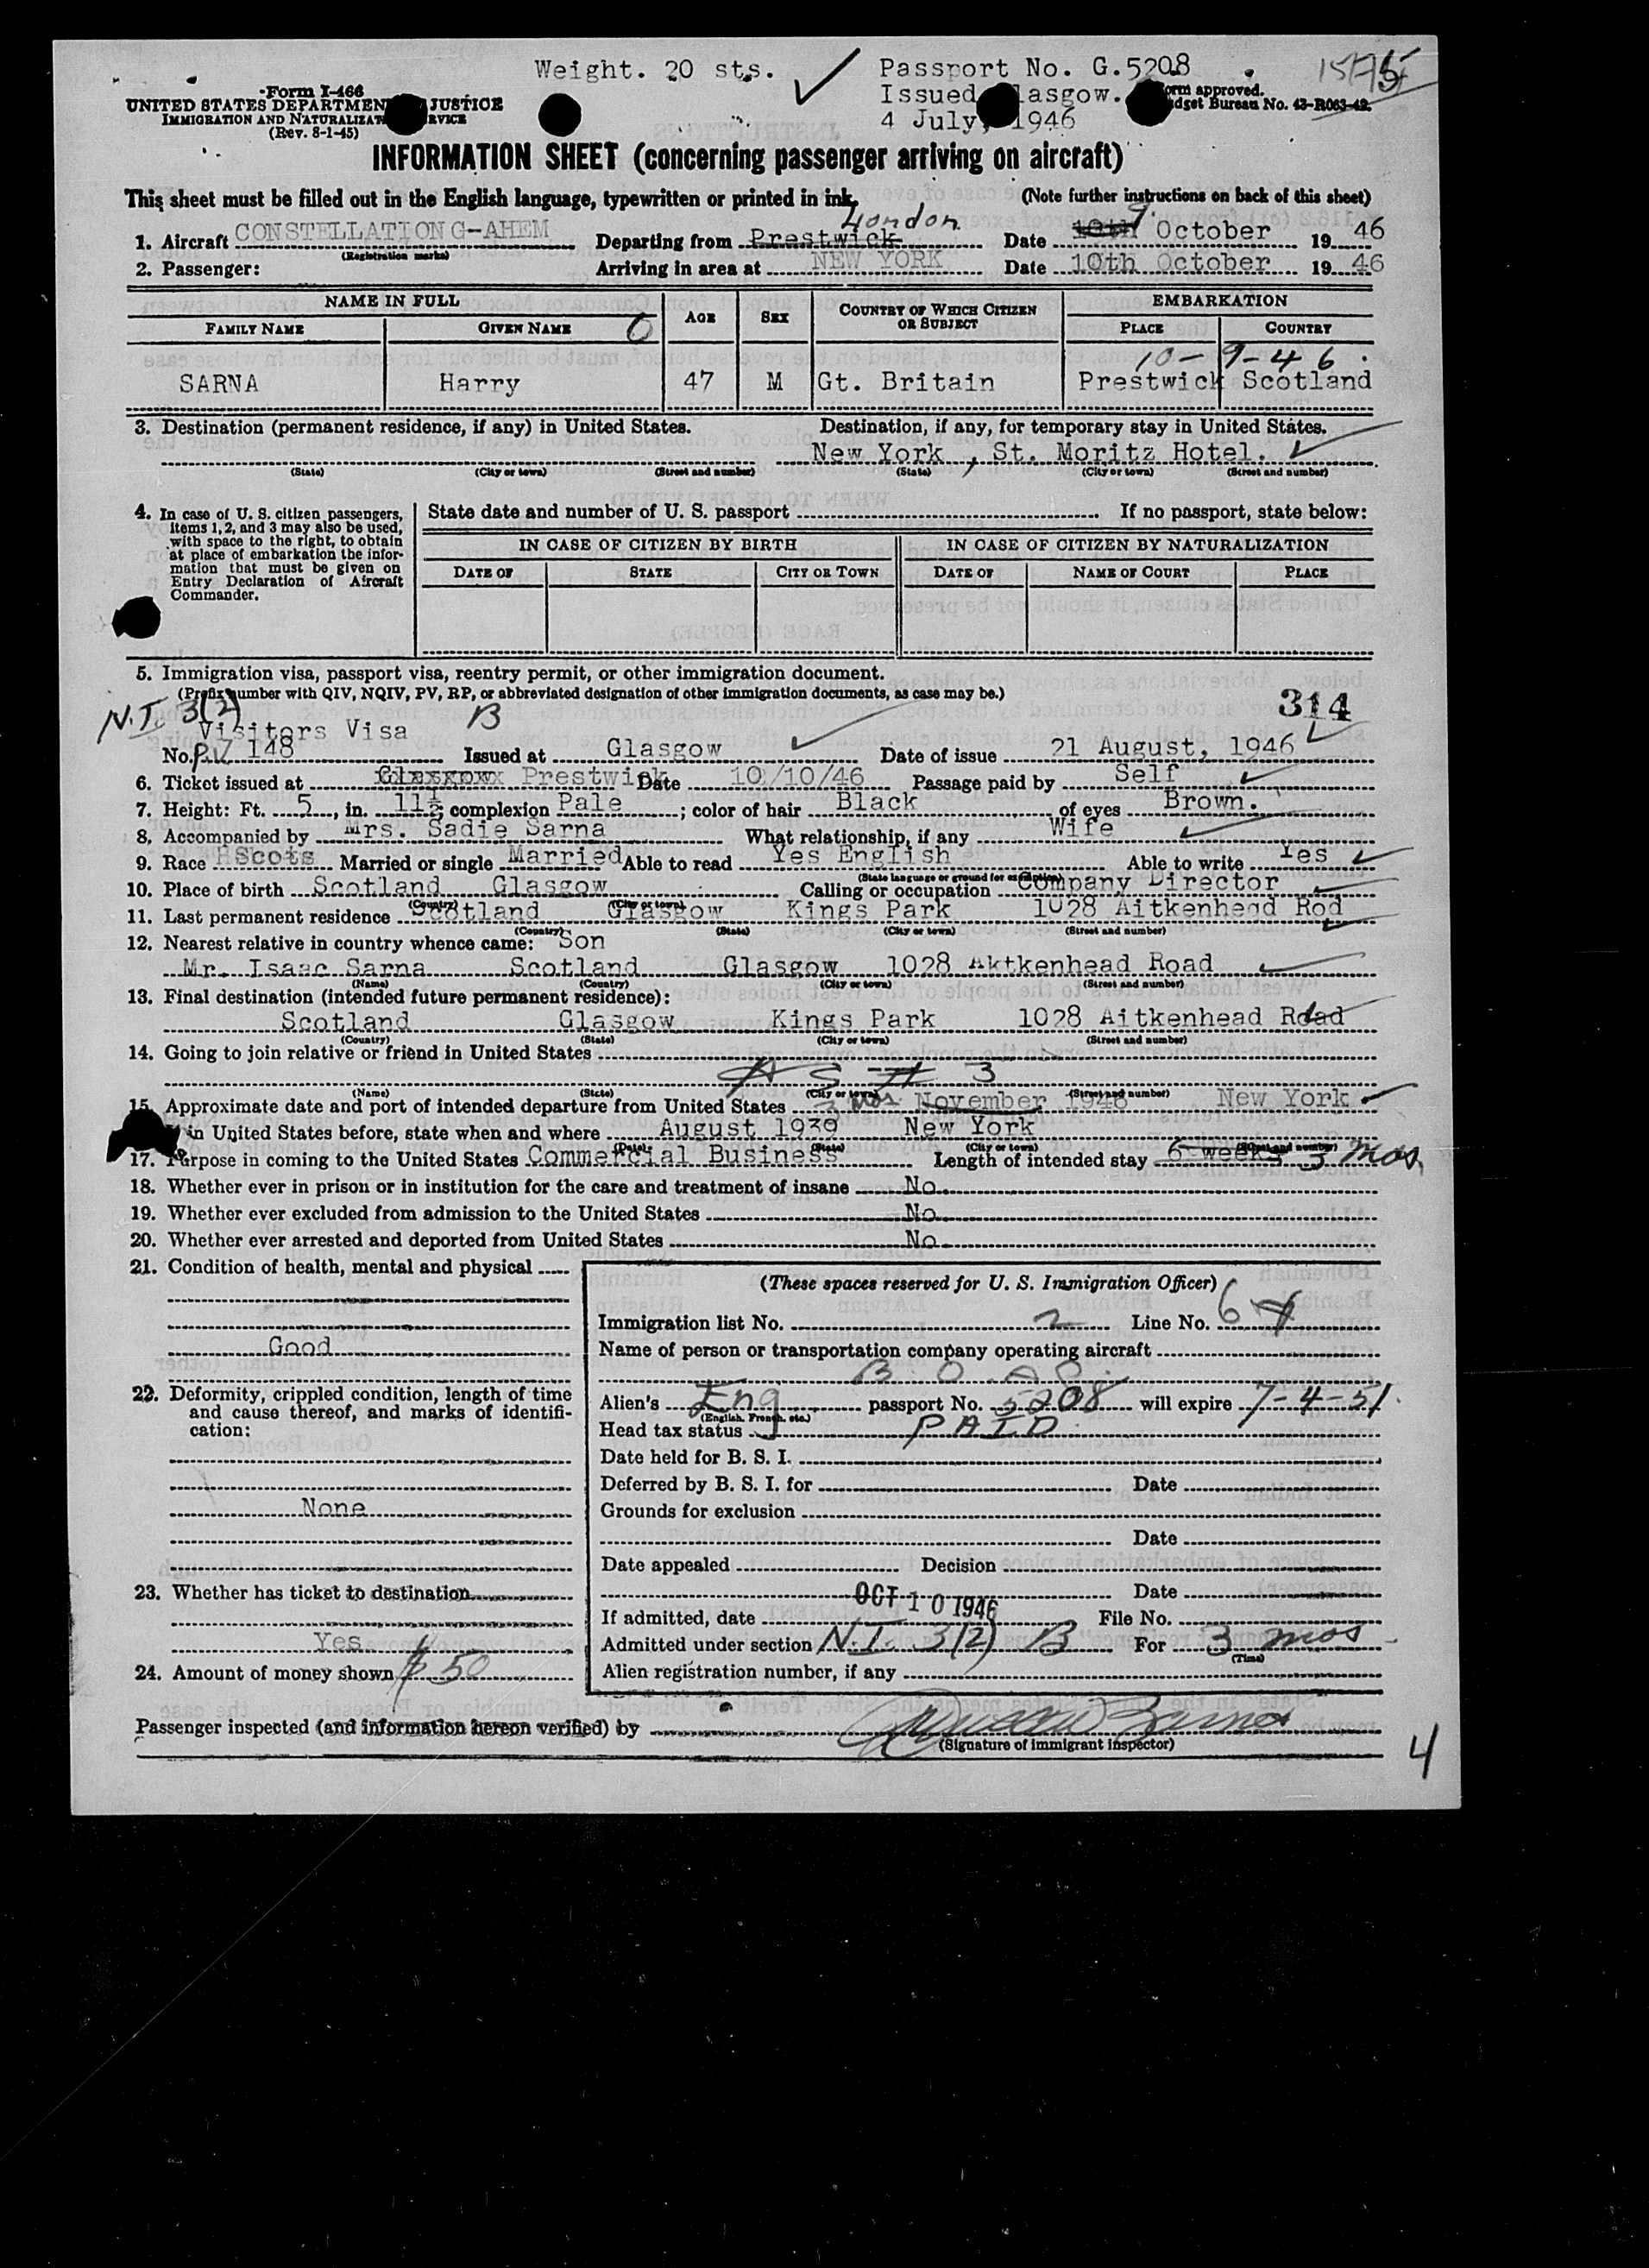 Weight. 20 sts. Passport No. G.5208
Form I-466 Issued lasgow. orm approved.
UNITED STATES DEPARTMEN JUSTICE dget Bureau No. 43-R063-42.
IMMIGRATION AND NATURALIZAT RVICE 4 July, 1946
(Rev. 8-1-45)
INFORMATION SHEET (concerning passenger arriving on aircraft)
This sheet must be filled out in the English language, typewritten or printed in ink. (Note further instructions on back of this sheet)
London 9.
1. Aircraft CONSTELLATION G-AHEM Departing from Prestwick Date 10th October 1946
(Registration marks)
2. Passenger: Arriving in area at NEW YORK Date 10th October 1946
NAME IN FULL AGE SEX COUNTRY OF WHICH CITIZEN OR SUBJECT EMBARKATION
FAMILY NAME GIVEN NAME PLACE COUNTRY
10-9-46.
SARNA Harry 47 M Gt. Britain Prestwick Scotland
3. Destination (permanent residence, if any) in United States. Destination, if any, for temporary stay in United States.
New York , St. Moritz Hotel.
(State) (City or town) (Street and number) (State) (City or town) (Street and number)
4. In case of U. S. citizen passengers, items 1, 2, and 3 may also be used, with space to the right, to obtain at place of embarkation the information that must be given on Entry Declaration of Aircraft Commander.
State date and number of U. S. passport If no passport, state below:
IN CASE OF CITIZEN BY BIRTH IN CASE OF CITIZEN BY NATURALIZATION
DATE OF STATE CITY OR TOWN DATE OF NAME OF COURT PLACE
5. Immigration visa, passport visa, reentry permit, or other immigration document.
(Prefix number with QIV, NQIV, PV, RP, or abbreviated designation of other immigration documents, as case may be.)
N.I. 3(2) B 314
Visitors Visa
No. P.V 148 Issued at Glasgow Date of issue 21 August, 1946
6. Ticket issued at Glasgow Prestwick Date 10/10/46 Passage paid by Self
7. Height: Ft. 5, in. 11½; complexion Pale; color of hair Black of eyes Brown.
8. Accompanied by Mrs. Sadie Sarna What relationship, if any Wife
9. Race Scots Married or single Married Able to read Yes English Able to write Yes
(State language or ground for exemption)
10. Place of birth Scotland Glasgow Calling or occupation Company Director
(Country) (City or town)
11. Last permanent residence Scotland Glasgow Kings Park 1028 Aitkenhead Rod
(Country) (State) (City or town) (Street and number)
12. Nearest relative in country whence came: Son
Mr. Isaac Sarna Scotland Glasgow 1028 Aktkenhead Road
(Name) (Country) (City or town) (Street and number)
13. Final destination (intended future permanent residence):
Scotland Glasgow Kings Park 1028 Aitkenhead Road
(Country) (State) (City or town) (Street and number)
14. Going to join relative or friend in United States
AS # 3
(Name) (State) (City or town) (Street and number)
15. Approximate date and port of intended departure from United States 3 mos. November 1946 New York
in United States before, state when and where August 1939 New York
(Date) (State) (City or town) (Street and number)
17. Purpose in coming to the United States Commercial Business Length of intended stay 6 weeks 3 mos.
18. Whether ever in prison or in institution for the care and treatment of insane No.
19. Whether ever excluded from admission to the United States No.
20. Whether ever arrested and deported from United States No.
21. Condition of health, mental and physical
Good
22. Deformity, crippled condition, length of time and cause thereof, and marks of identification:
None
23. Whether has ticket to destination
Yes
24. Amount of money shown $50
(These spaces reserved for U. S. Immigration Officer)
Immigration list No. 2 Line No. 6
Name of person or transportation company operating aircraft
B. O. A. C.
Alien's Eng passport No. 5208 will expire 7-4-51.
(English, French, etc.)
Head tax status PAID
Date held for B. S. I.
Deferred by B. S. I. for Date
Grounds for exclusion
Date
Date appealed Decision
Date
If admitted, date OCT 10 1946 File No.
Admitted under section N.I. 3(2) B For 3 mos
(Time)
Alien registration number, if any
Passenger inspected (and information hereon verified) by
(Signature of immigrant inspector)
4